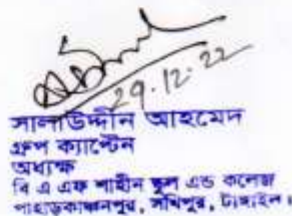 29.12.22
সালাউদ্দীন আহমেদ
গ্রুপ ক্যাপ্টেন
অধ্যক্ষ
বি এ এফ শাহীন স্কুল এন্ড কলেজ
পাহাড়কাঞ্চনপুর, সখিপুর, টাঙ্গাইল।